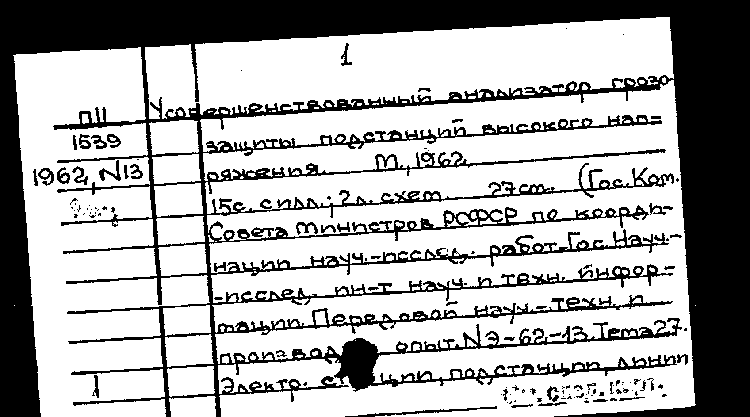 1
Усовершенствованный анализатор грозо-
П11
1539
защиты подстанций высокого нап=
1962, N13
ряжения. М., 1962
15с. с илл.; 2л. схем. 27см. (Гос. Ком.
Совета Министров РСФСР по коорди-
нации науч.-исслед. работ. Гос. Науч.-
-исслед. ин-т науч. и техн. инфор-
мации. Передовой науч.-техн. и
производ опыт. N Э-62-13. Тема 27.
1
Электр. станции, подстанции, линии